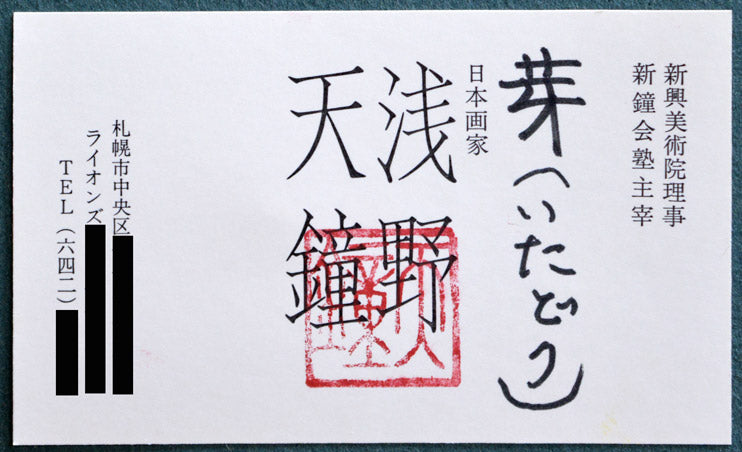 新興美術院理事
新鐘会塾主宰
芽(いたどり)
日本画家
浅野
天鐘
札幌市中央区
ライオンズ
TEL(六四二)